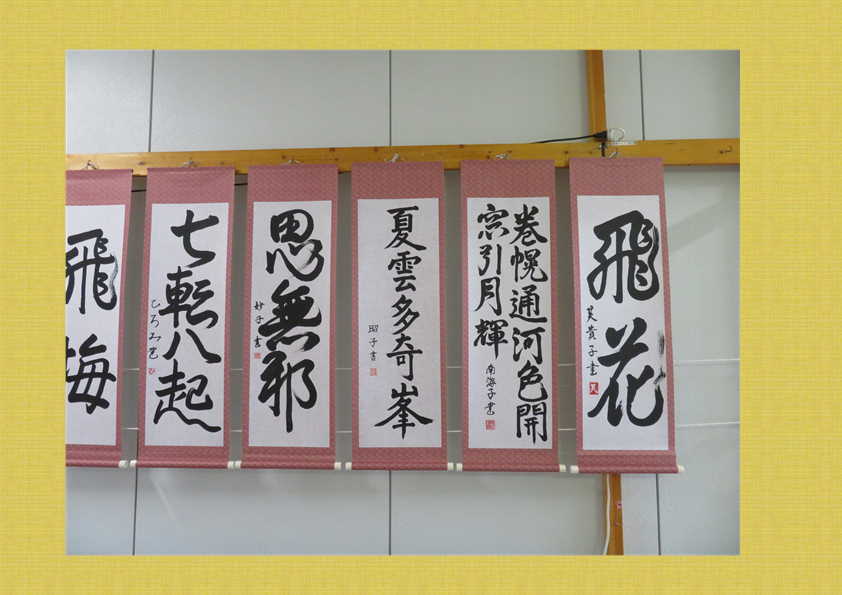 飛花
芙貴子書
巻幌通河色開
窓引月輝
南海子書
夏雲多奇峯
昭子書
思無邪
妙子書
七転八起
ひろみ書
飛梅